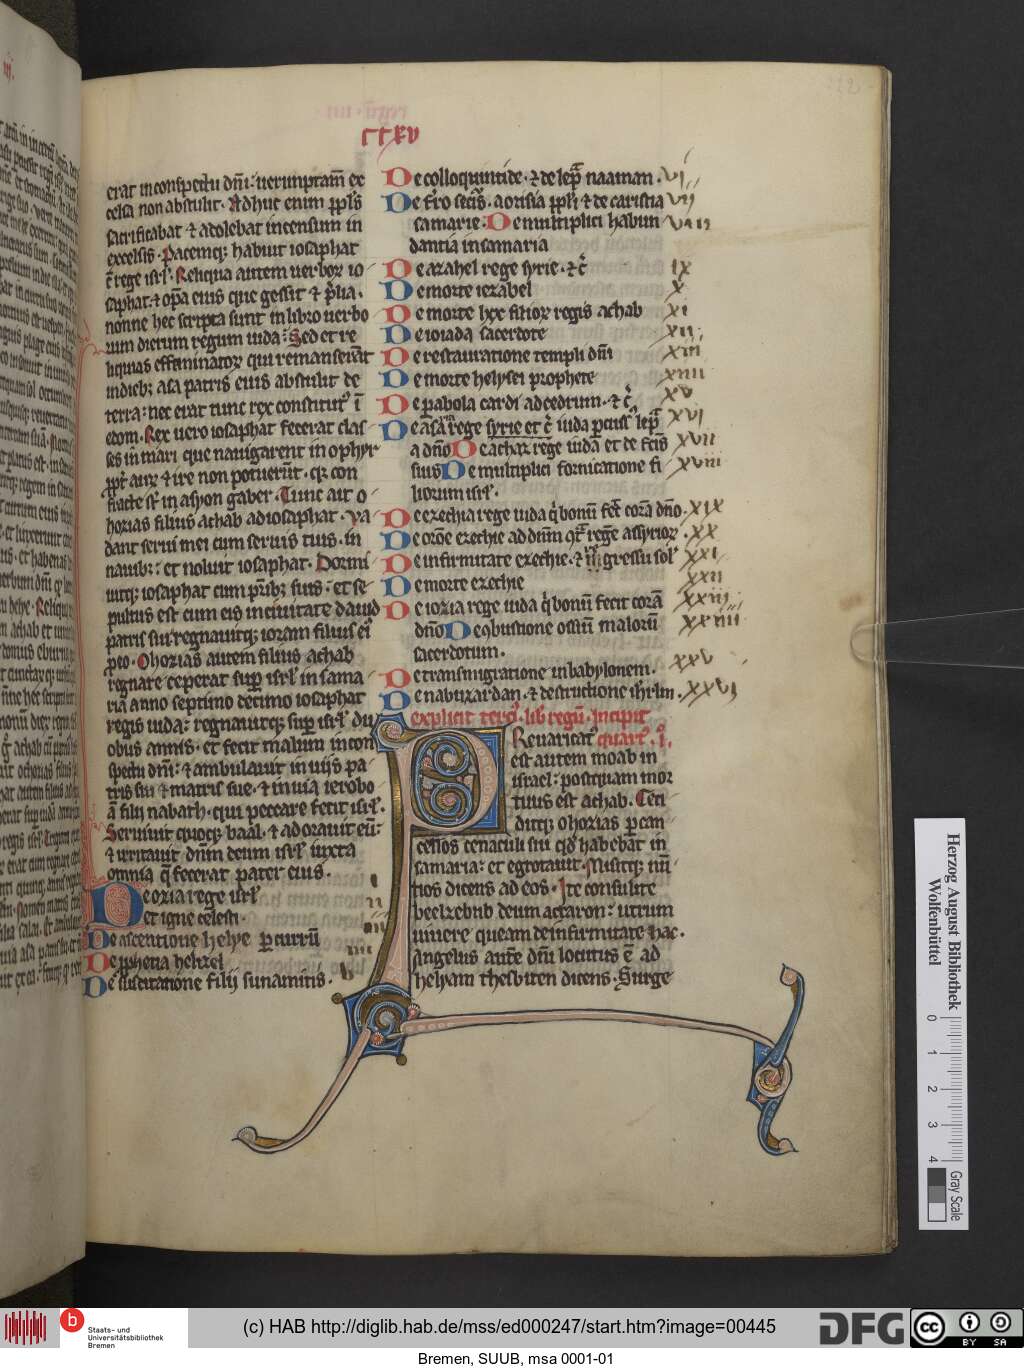 CCXV
erat in conspectu dn̄i. uerunptam̄ ex
celsa non abstulit. Adhuc enim ppl̄s
sacrificabat ⁊ adolebat incensum in
excelsis. Pacemq; habuit iosaphat
c̄ rege isrl̄. Reliqua autem uerboꝝ io
saphat. ⁊ op̄a eius que gessit ⁊ p̄lia.
nonne hec scripta sunt in libro uerbo
rum dierum regum iuda: Sed et re
liquias effeminatoꝝ qui remanserānt
in dieb; asa patris eius abstulit de
terra: nec erat tunc rex constitut' ī
edom. Rex uero iosaphat fecerat clas
ses in mari que nauigarent in ophyr
ppt̄ auꝝ ⁊ ire non potuerūt. qꝛ con
fracte st̄ in asyon gaber. Tunc ait o
hozias filius achab ad iosaphat. Va
dant serui mei cum seruis tuis. in
nauib; : et noluit iosaphat. Dormi
uitq; iosaphat cum pr̄ib; suis: et se
pultus est cum eis in ciuitate dauid
patris sui. regnauitq; ioram filius ei'
p̄ eo. Ohozias autem filius achab
regnare ceperat sup̄ isrl̄ in sama
ria anno septimo decimo iosaphat
regis iuda: regnauitq; sup̄ isrl̄ du
obus annis. et fecit malum in con
spectu dn̄i: ⁊ ambulauit in uijs pa
tris sui ⁊ matris sue. ⁊ in uia ierobo
ā filij nabath. qui peccare fecit isrl̄.
Seruiuit quoq; baal. ⁊ adorauit eū:
⁊ irritauit dn̄m deum isrl̄ iuxta
omnia q̄ fecerat pater eius.
De ozia rege isrl̄
et igne celesti.
De ascentione helye p currū
De pphetia helizei
De suscitatione filij sunamitis. v
De colloquintide. ⁊ de lepr̄a naaman. vi
De fr̄o sec̄is. aorisia ppl̄i ⁊ de caristia vii
samarie. De multiplici habun viii
dantia in samaria
De azahel rege syrie. ⁊ c̄ ix
De morte iezabel x
De morte lxx filioꝝ regis achab xi
De ioiada sacerdote xii
De restauratione templi dn̄i xiii
De morte helysei prophete xiiii
De parabola cardi ad cedrum. ⁊ c̄. xv
De asa rege syrie et c̄ iuda pcuss' lepr̄a xvi
a dn̄o De achaz rege iuda et de fc̄is xvii
suis De multiplici fornicatione fi xviii
liorum isrl̄.
De ezechia rege iuda q̇ bonū fec̄ corā dn̄o. xix
De or̄one ezechie ad dn̄m 9t̄ regē assyrioꝝ. xx
De infirmitate ezechie. ⁊ gressu sol' xxi
De morte ezechie xxii
De iozia rege iuda q̇ bonū fecit corā xxiii
dn̄o De 9bustione ossiū malorū xxiiii
sacerdotum.
De transmigratione in babylonem. xxv
De nabuzardan. ⁊ destructione ihrlm̄. xxvi
explicit terci'. lib̄ regū. Incipit
quart'. i.
Preuaricat'
est autem moab in
israel: postquam mor
tuus est achab. Ceci
ditq; ohozias p can
cellos cenaculi sui qd̄ habebat in
samaria: et egrotauit. Misitq; nū
tios dicens ad eos. Ite consulite
beelzebub deum accaron: utrum
uiuere queam de infirmitate hac.
Angelus autē dn̄i locutus ē ad
helyam thesbiten dicens. Surge
Herzog August Bibliothek
Wolfenbüttel
0 1 2 3 4
Gray Scale
b Staats- und
Universitätsbibliothek
Bremen
(c) HAB http://diglib.hab.de/mss/ed000247/start.htm?image=00445
DFG
cc BY SA
Bremen, SUUB, msa 0001-01